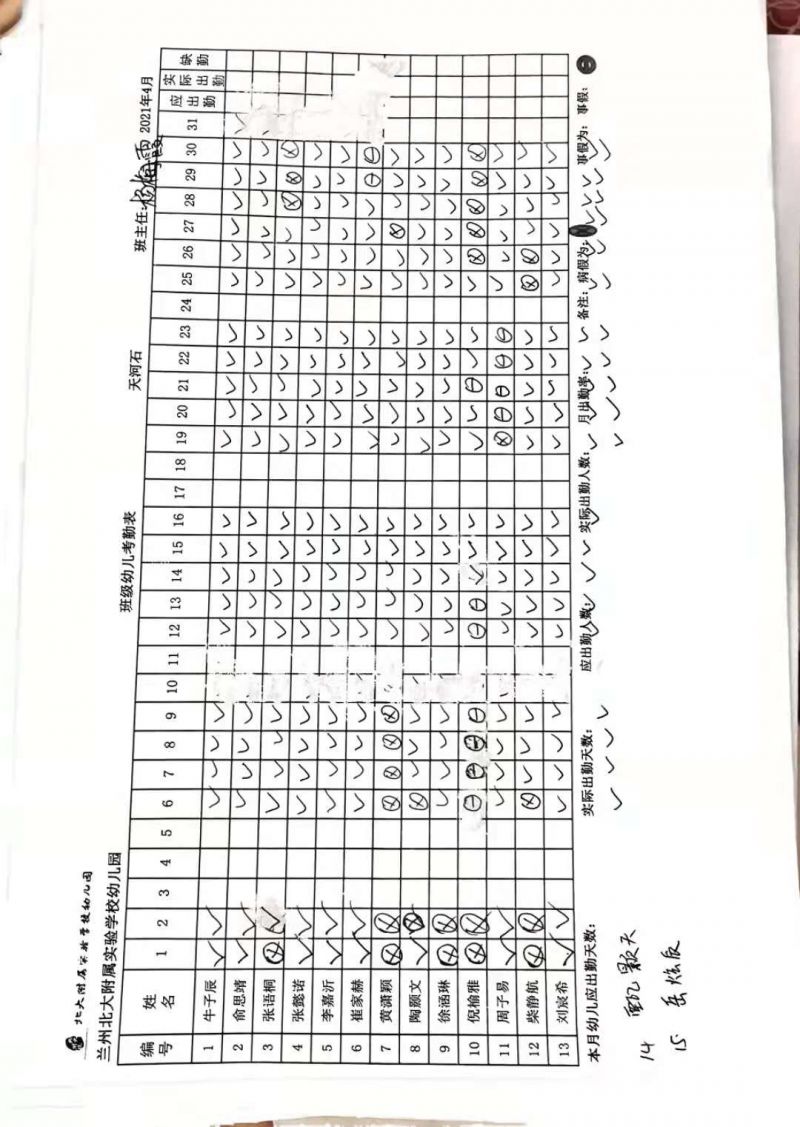 北大附属实验学校幼儿园
兰州北大附属实验学校幼儿园 班级幼儿考勤表 天河石 班主任: 2021年4月
编号 姓名 1 2 3 4 5 6 7 8 9 10 11 12 13 14 15 16 17 18 19 20 21 22 23 24 25 26 27 28 29 30 31 应出勤 实际出勤 缺勤
1 牛子辰
2 俞思靖
3 张语桐
4 张懿诺
5 李嘉沂
6 崔家赫
7 黄潇颖
8 陶颐文
9 徐涵琳
10 倪榆雅
11 周子易
12 柴静航
13 刘宸希
本月幼儿应出勤天数: 实际出勤天数: 应出勤人数: 实际出勤人数: 月出勤率: 备注: 病假为: 事假为: 事假:
14
15